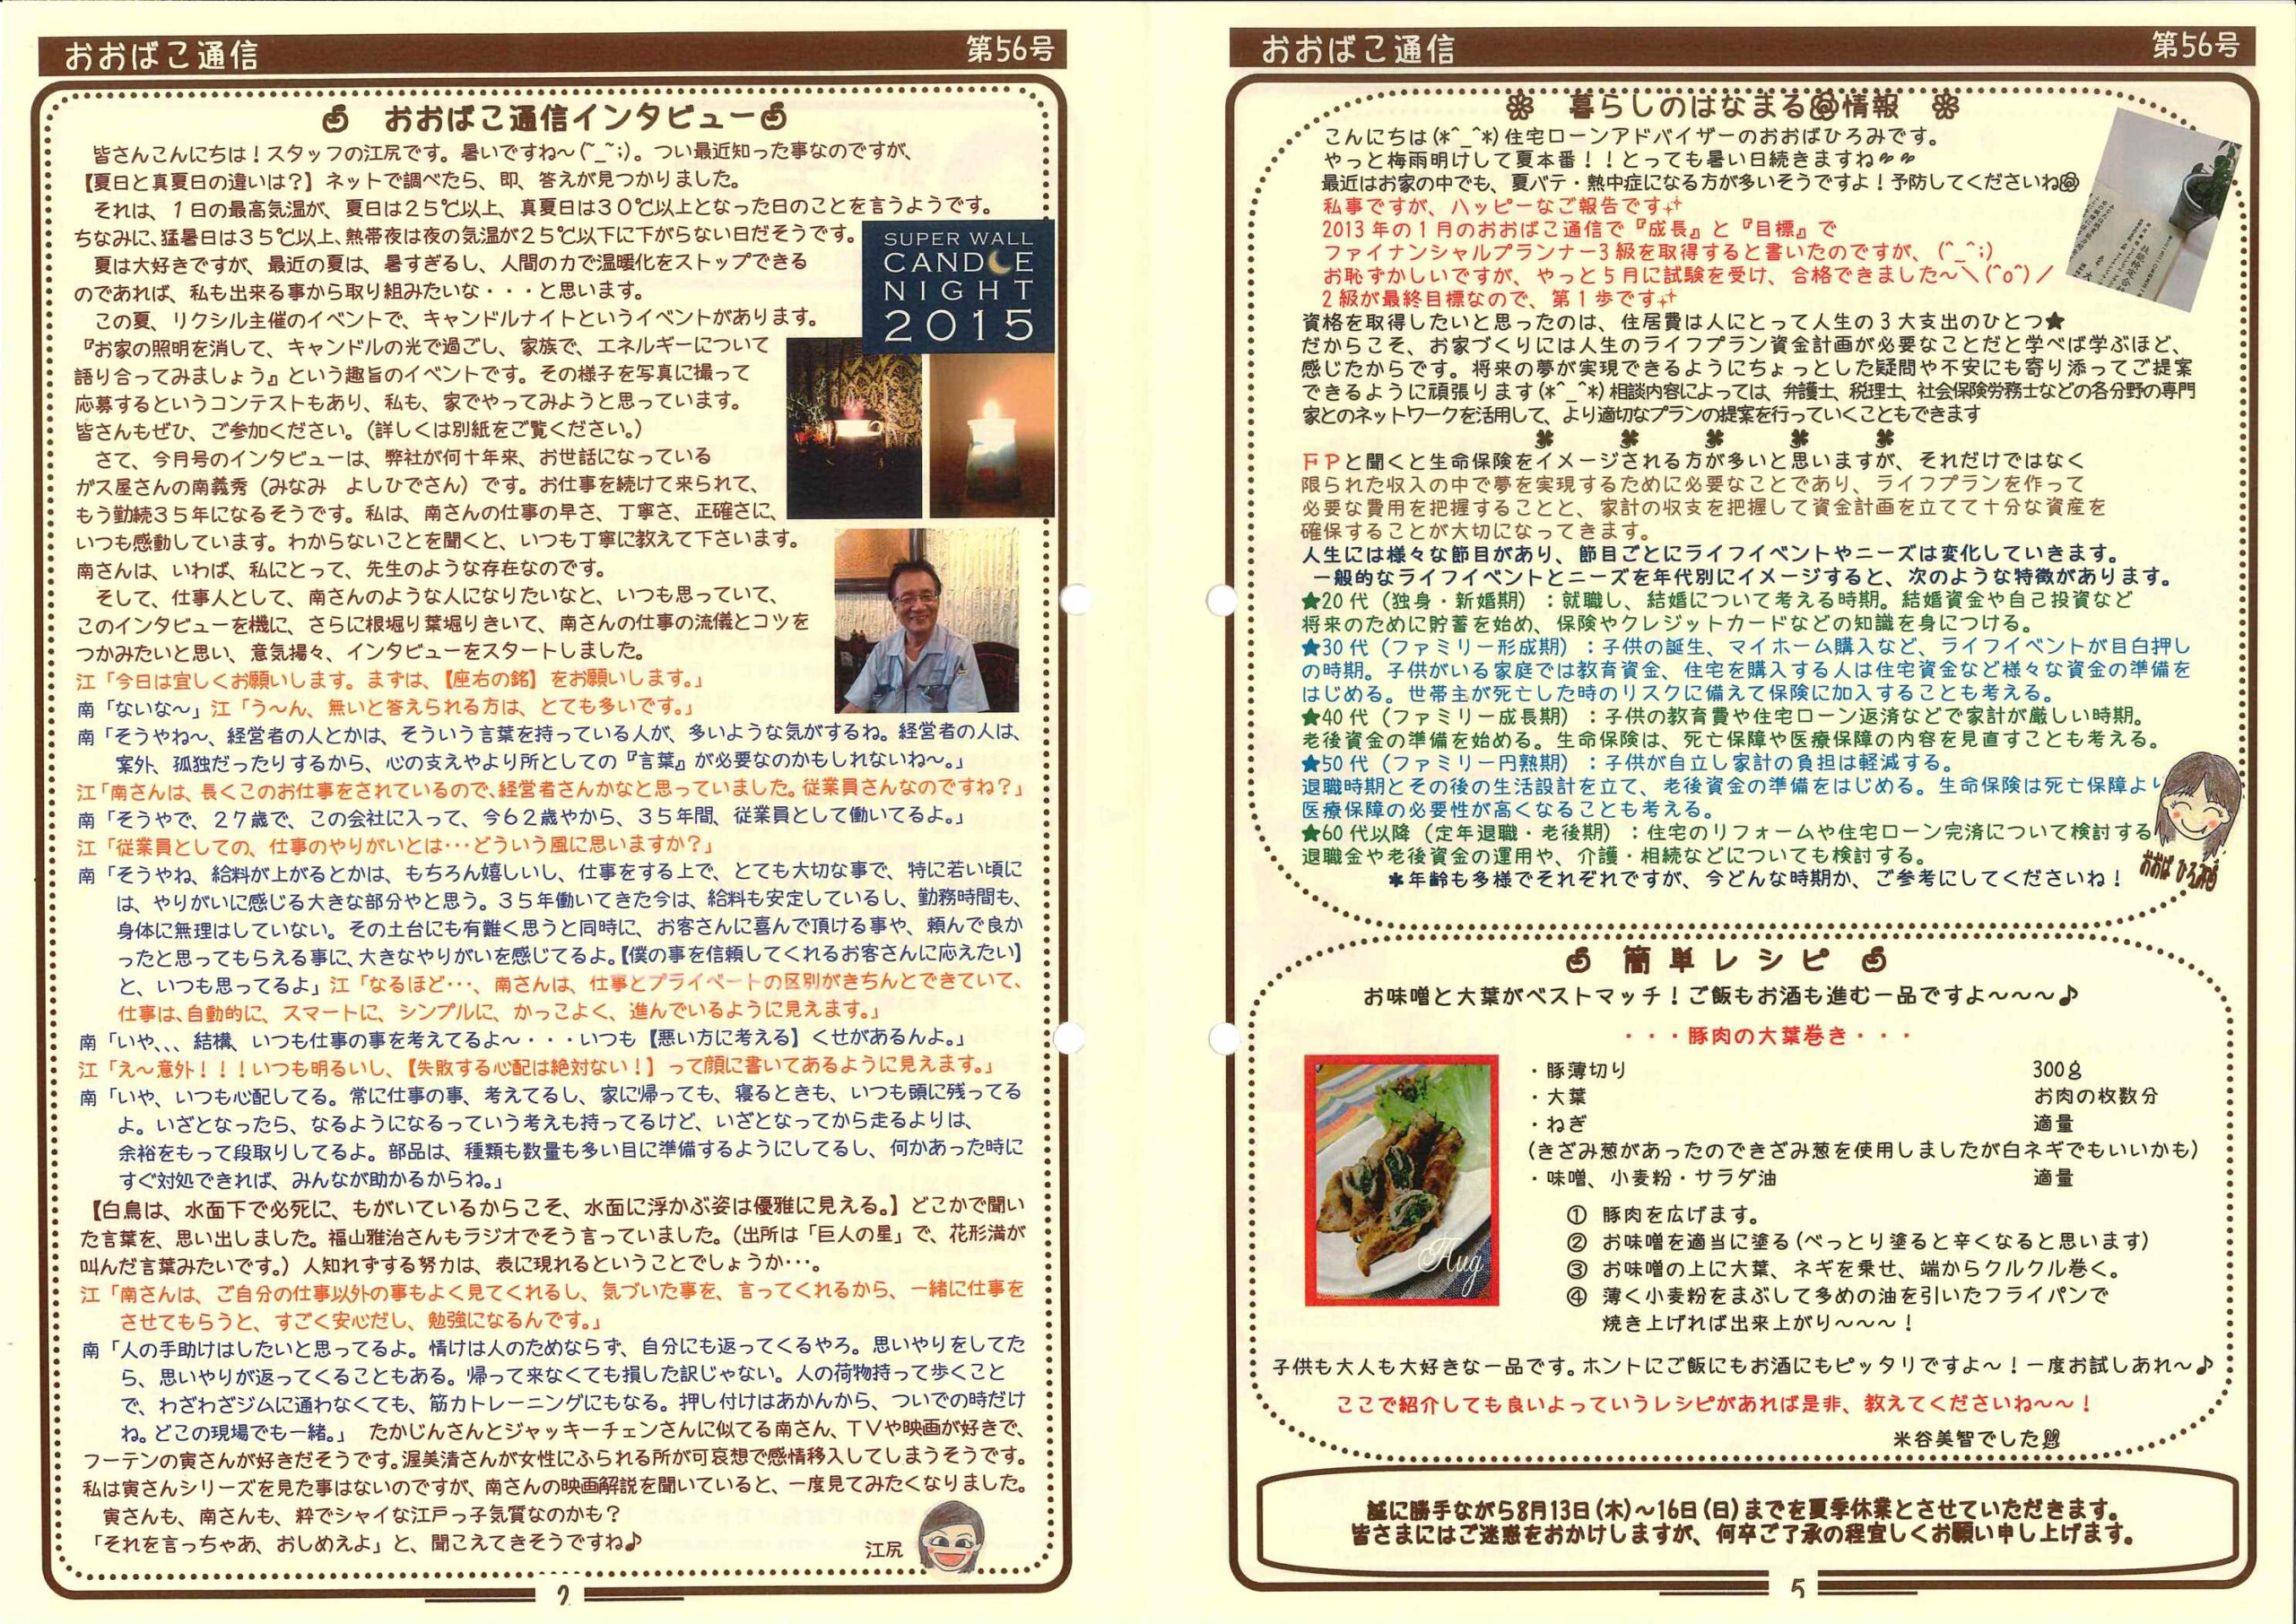 おおばこ通信 第56号
おおばこ通信インタビュー
皆さんこんにちは！スタッフの江尻です。暑いですね～(~_~;)。つい最近知った事なのですが、
【夏日と真夏日の違いは？】ネットで調べたら、即、答えが見つかりました。
それは、１日の最高気温が、夏日は２５℃以上、真夏日は３０℃以上となった日のことを言うようです。
ちなみに、猛暑日は３５℃以上、熱帯夜は夜の気温が２５℃以下に下がらない日だそうです。
夏は大好きですが、最近の夏は、暑すぎるし、人間の力で温暖化をストップできる
のであれば、私も出来る事から取り組みたいな・・・と思います。
この夏、リクシル主催のイベントで、キャンドルナイトというイベントがあります。
『お家の照明を消して、キャンドルの光で過ごし、家族で、エネルギーについて
語り合ってみましょう』という趣旨のイベントです。その様子を写真に撮って
応募するというコンテストもあり、私も、家でやってみようと思っています。
皆さんもぜひ、ご参加ください。（詳しくは別紙をご覧ください。）
SUPER WALL
CANDLE
NIGHT
2015
さて、今月号のインタビューは、弊社が何十年来、お世話になっている
ガス屋さんの南義秀（みなみ　よしひでさん）です。お仕事を続けて来られて、
もう勤続３５年になるそうです。私は、南さんの仕事の早さ、丁寧さ、正確さに、
いつも感動しています。わからないことを聞くと、いつも丁寧に教えて下さいます。
南さんは、いわば、私にとって、先生のような存在なのです。
そして、仕事人として、南さんのような人になりたいなと、いつも思っていて、
このインタビューを機に、さらに根堀り葉堀りきいて、南さんの仕事の流儀とコツを
つかみたいと思い、意気揚々、インタビューをスタートしました。
江「今日は宜しくお願いします。まずは、【座右の銘】をお願いします。」
南「ないな～」江「う～ん、無いと答えられる方は、とても多いです。」
南「そうやね～、経営者の人とかは、そういう言葉を持っている人が、多いような気がするね。経営者の人は、
案外、孤独だったりするから、心の支えやより所としての『言葉』が必要なのかもしれないね～。」
江「南さんは、長くこのお仕事をされているので、経営者さんかなと思っていました。従業員さんなのですね？」
南「そうやで、２７歳で、この会社に入って、今６２歳やから、３５年間、従業員として働いてるよ。」
江「従業員としての、仕事のやりがいとは…どういう風に思いますか？」
南「そうやね、給料が上がるとかは、もちろん嬉しいし、仕事をする上で、とても大切な事で、特に若い頃に
は、やりがいに感じる大きな部分やと思う。３５年働いてきた今は、給料も安定しているし、勤務時間も、
身体に無理はしていない。その土台にも有難く思うと同時に、お客さんに喜んで頂ける事や、頼んで良か
ったと思ってもらえる事に、大きなやりがいを感じてるよ。【僕の事を信頼してくれるお客さんに応えたい】
と、いつも思ってるよ」江「なるほど…、南さんは、仕事とプライベートの区別がきちんとできていて、
仕事は、自動的に、スマートに、シンプルに、かっこよく、進んでいるように見えます。」
南「いや、、、結構、いつも仕事の事を考えてるよ～・・・いつも【悪い方に考える】くせがあるんよ。」
江「え～意外！！！いつも明るいし、【失敗する心配は絶対ない！】って顔に書いてあるように見えます。」
南「いや、いつも心配してる。常に仕事の事、考えてるし、家に帰っても、寝るときも、いつも頭に残ってる
よ。いざとなったら、なるようになるっていう考えも持ってるけど、いざとなってから走るよりは、
余裕をもって段取りしてるよ。部品は、種類も数量も多い目に準備するようにしてるし、何かあった時に
すぐ対処できれば、みんなが助かるからね。」
【白鳥は、水面下で必死に、もがいているからこそ、水面に浮かぶ姿は優雅に見える。】どこかで聞い
た言葉を、思い出しました。福山雅治さんもラジオでそう言っていました。（出所は「巨人の星」で、花形満が
叫んだ言葉みたいです。）人知れずする努力は、表に現れるということでしょうか…。
江「南さんは、ご自分の仕事以外の事もよく見てくれるし、気づいた事を、言ってくれるから、一緒に仕事を
させてもらうと、すごく安心だし、勉強になるんです。」
南「人の手助けはしたいと思ってるよ。情けは人のためならず、自分にも返ってくるやろ。思いやりをしてた
ら、思いやりが返ってくることもある。帰って来なくても損した訳じゃない。人の荷物持って歩くこと
で、わざわざジムに通わなくても、筋力トレーニングにもなる。押し付けはあかんから、ついでの時だけ
ね。どこの現場でも一緒。」　たかじんさんとジャッキーチェンさんに似てる南さん、ＴＶや映画が好きで、
フーテンの寅さんが好きだそうです。渥美清さんが女性にふられる所が可哀想で感情移入してしまうそうです。
私は寅さんシリーズを見た事はないのですが、南さんの映画解説を聞いていると、一度見てみたくなりました。
寅さんも、南さんも、粋でシャイな江戸っ子気質なのかも？
「それを言っちゃあ、おしめえよ」と、聞こえてきそうですね♪
江尻
2
おおばこ通信 第56号
暮らしのはなまる情報
こんにちは(*^_^*)住宅ローンアドバイザーのおおばひろみです。
やっと梅雨明けして夏本番！！とっても暑い日続きますね
最近はお家の中でも、夏バテ・熱中症になる方が多いそうですよ！予防してくださいね
私事ですが、ハッピーなご報告です
2013年の１月のおおばこ通信で『成長』と『目標』で
ファイナンシャルプランナー３級を取得すると書いたのですが、(^_^;)
お恥ずかしいですが、やっと５月に試験を受け、合格できました～＼(^o^)／
２級が最終目標なので、第１歩です
資格を取得したいと思ったのは、住居費は人にとって人生の３大支出のひとつ★
だからこそ、お家づくりには人生のライフプラン資金計画が必要なことだと学べば学ぶほど、
感じたからです。将来の夢が実現できるようにちょっとした疑問や不安にも寄り添ってご提案
できるように頑張ります(*^_^*)相談内容によっては、弁護士、税理士、社会保険労務士などの各分野の専門
家とのネットワークを活用して、より適切なプランの提案を行っていくこともできます
ＦＰと聞くと生命保険をイメージされる方が多いと思いますが、それだけではなく
限られた収入の中で夢を実現するために必要なことであり、ライフプランを作って
必要な費用を把握することと、家計の収支を把握して資金計画を立てて十分な資産を
確保することが大切になってきます。
人生には様々な節目があり、節目ごとにライフイベントやニーズは変化していきます。
一般的なライフイベントとニーズを年代別にイメージすると、次のような特徴があります。
★20代（独身・新婚期）：就職し、結婚について考える時期。結婚資金や自己投資など
将来のために貯蓄を始め、保険やクレジットカードなどの知識を身につける。
★30代（ファミリー形成期）：子供の誕生、マイホーム購入など、ライフイベントが目白押し
の時期。子供がいる家庭では教育資金、住宅を購入する人は住宅資金など様々な資金の準備を
はじめる。世帯主が死亡した時のリスクに備えて保険に加入することも考える。
★40代（ファミリー成長期）：子供の教育費や住宅ローン返済などで家計が厳しい時期。
老後資金の準備を始める。生命保険は、死亡保障や医療保障の内容を見直すことも考える。
★50代（ファミリー円熟期）：子供が自立し家計の負担は軽減する。
退職時期とその後の生活設計を立て、老後資金の準備をはじめる。生命保険は死亡保障より
医療保障の必要性が高くなることも考える。
★60代以降（定年退職・老後期）：住宅のリフォームや住宅ローン完済について検討する
退職金や老後資金の運用や、介護・相続などについても検討する。
＊年齢も多様でそれぞれですが、今どんな時期か、ご参考にしてくださいね！
おおば ひろみ
簡単レシピ
お味噌と大葉がベストマッチ！ご飯もお酒も進む一品ですよ～～～♪
・・・豚肉の大葉巻き・・・
・豚薄切り 300g
・大葉 お肉の枚数分
・ねぎ 適量
（きざみ葱があったのできざみ葱を使用しましたが白ネギでもいいかも）
・味噌、小麦粉・サラダ油 適量
Aug
① 豚肉を広げます。
② お味噌を適当に塗る（べっとり塗ると辛くなると思います）
③ お味噌の上に大葉、ネギを乗せ、端からクルクル巻く。
④ 薄く小麦粉をまぶして多めの油を引いたフライパンで
焼き上げれば出来上がり～～～！
子供も大人も大好きな一品です。ホントにご飯にもお酒にもピッタリですよ～！一度お試しあれ～♪
ここで紹介しても良いよっていうレシピがあれば是非、教えてくださいね～～！
米谷美智でした
誠に勝手ながら8月13日（木）～16日（日）までを夏季休業とさせていただきます。
皆さまにはご迷惑をおかけしますが、何卒ご了承の程宜しくお願い申し上げます。
5